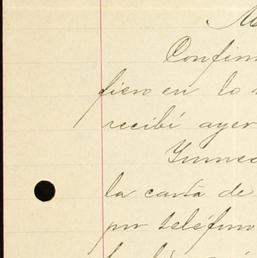 Confirm
fieso en lo
recibí ayer
Inmed
la carta de
por teléfono